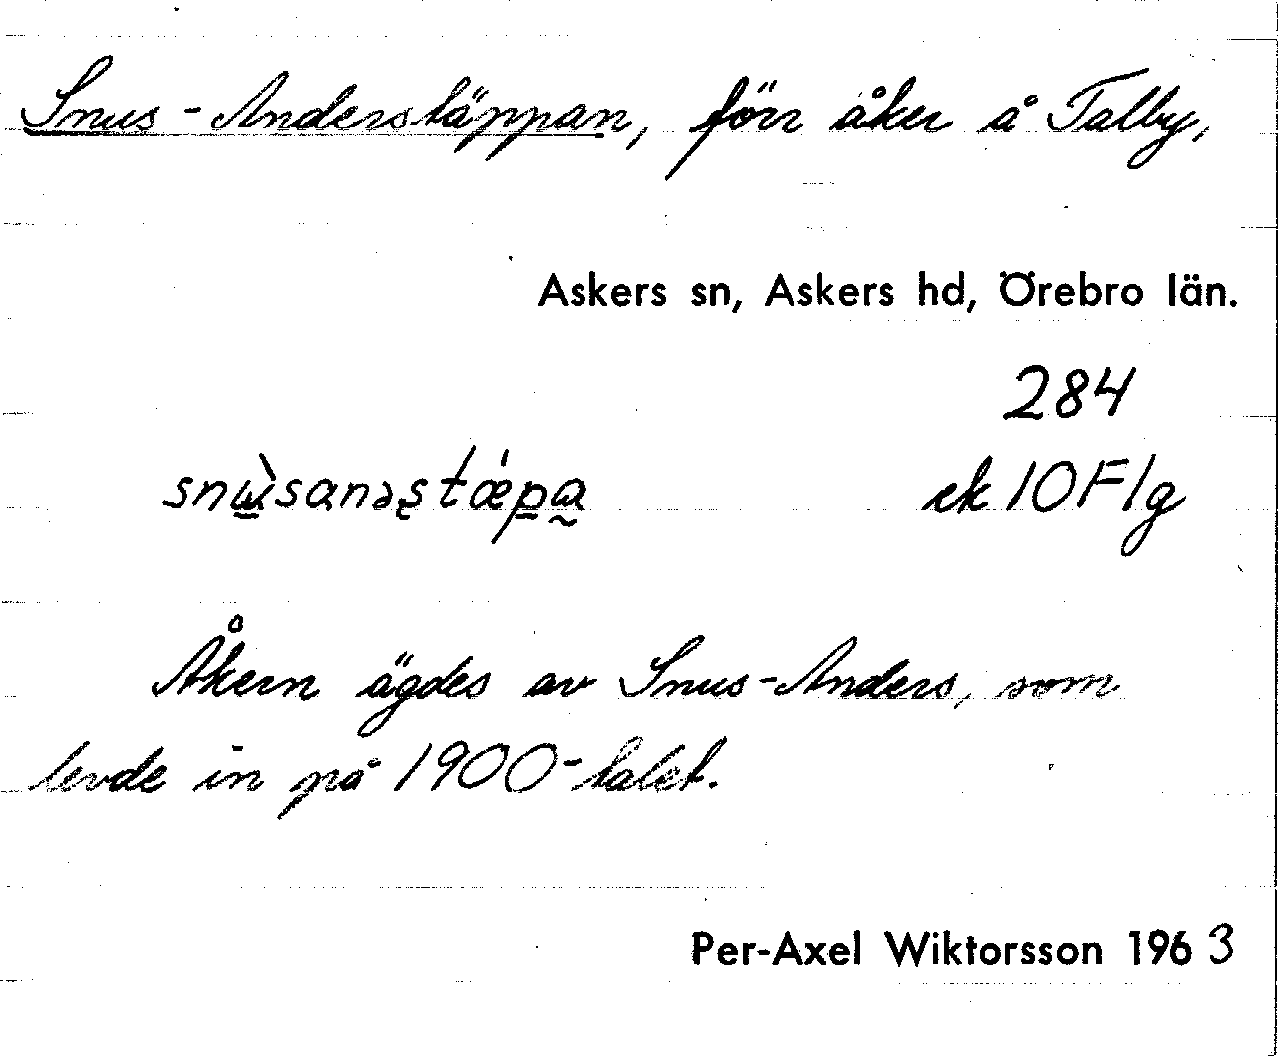 Snus-Anderstäppan, förr åker å Talby,
Askers sn, Askers hd, Örebro län.
284
snɯ̀sanəştǽpa ek 10F/g
Åkern ägdes av Snus-Anders, som
levde in på 1900-talet.
Per-Axel Wiktorsson 1963